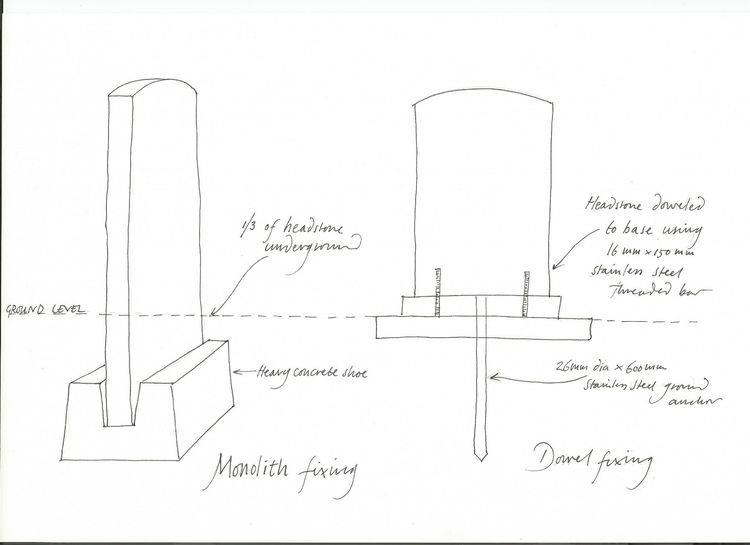 1/3 of headstone
underground
GROUND LEVEL
Heavy concrete shoe
Monolith fixing
Headstone doweled
to base using
16mm x 150mm
stainless steel
threaded bar
26mm dia x 600mm
stainless steel ground
anchor
Dowel fixing